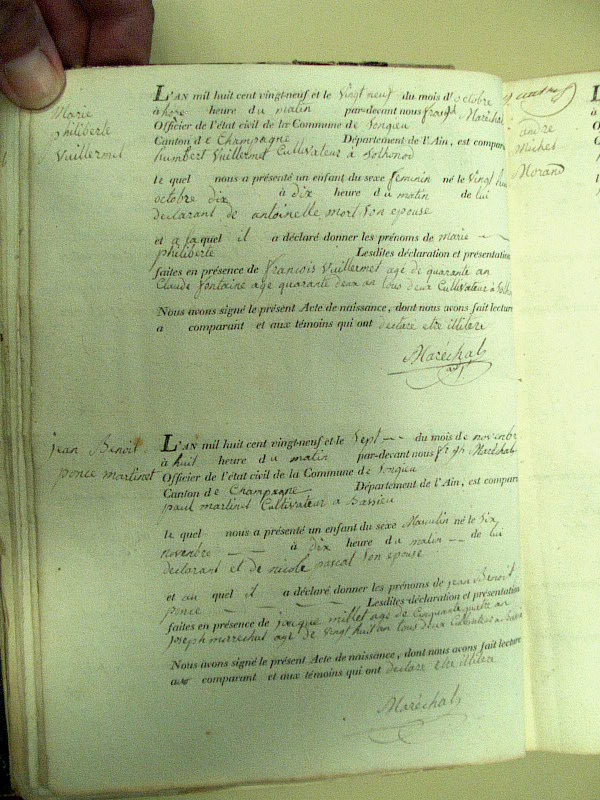 Marie
philiberte
Vuillermet
L'AN mil huit cent vingt-neuf et le vingt neuf du mois d'octobre
à heure du matin par-devant nous Maréchal
Officier de l'état civil de la Commune de Songieu
Canton de Champagne Département de l'Ain, est compar
humbert Vuillermet Cultivateur à Sothonod
le quel nous a présenté un enfant du sexe feminin né le vingt
octobre dix à dix heure du matin de lui
declarant de antoinette mort son epouse
et a laquel il a déclaré donner les prénoms de marie
philiberte Lesdites déclaration et présentation
faites en présence de françois Vuillermet agé de quarante an
Claude fontaine age quarante deux an tous deux Cultivateur à
Nous avons signé le présent Acte de naissance, dont nous avons fait lecture
a comparant et aux témoins qui ont declaré etre illitere
Maréchal
jean Benoit
ponce martinet
L'AN mil huit cent vingt-neuf et le Sept du mois de novembre
à huit heure du matin par-devant nous Maréchal
Officier de l'état civil de la Commune de Songieu
Canton de Champagne Département de l'Ain, est compar
paul martinet Cultivateur a Bassieu
le quel nous a présenté un enfant du sexe Masculin né le Six
novembre à dix heure du matin de lui
declarant et de nicole pascal son epouse
et au quel il a déclaré donner les prénoms de jean Benoit
ponce Lesdites déclaration et présentation
faites en présence de jacque millet age de Cinquante quatre an
joseph marechal age de vingt huit an tous deux Cultivateur a
Nous avons signé le présent Acte de naissance, dont nous avons fait lecture
au comparant et aux témoins qui ont declare etre illitere
Maréchal
andré
Michel
Morand